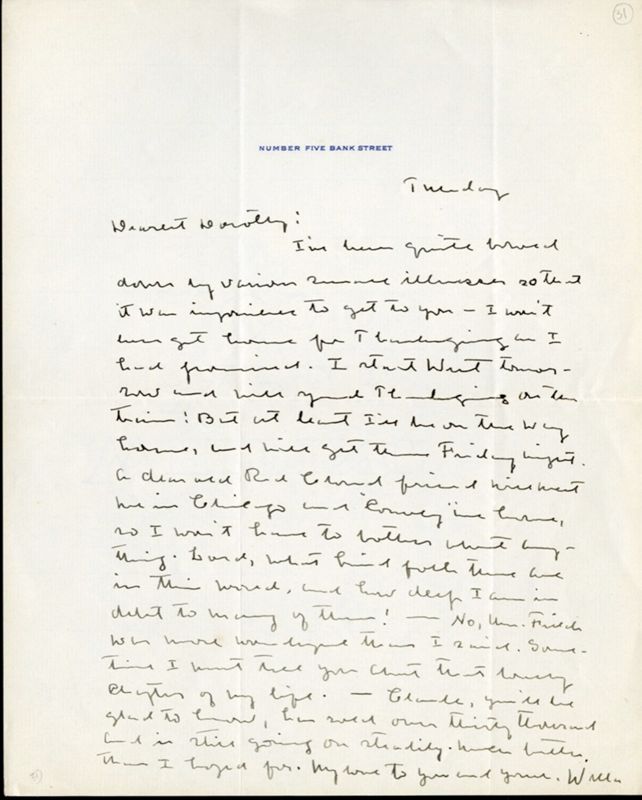 31
NUMBER FIVE BANK STREET
Tuesday
Dearest Dorothy:
I've been quite bowed
down by various small illnesses so that
it was impossible to get to you — I won't
even get home for Thanksgiving as I
had promised. I start West tomor-
row and will spend Thanksgiving on the
train! But at least I'll be on the way
home, and will get there Friday night.
A dear old Red Cloud friend will meet
me in Chicago and "convoy" me home,
so I won't have to bother about any-
thing. Lord, what kind folk there are
in this world, and how deep I am in
debt to many of them! — No, Mr.
was more than I said. Some-
time I must tell you about that lovely
chapter of my life. — Claude, you'll be
glad to know, has sold over thirty thousand
and is still going on steadily. Much better
than I hoped for. My love to you and yours. Willa